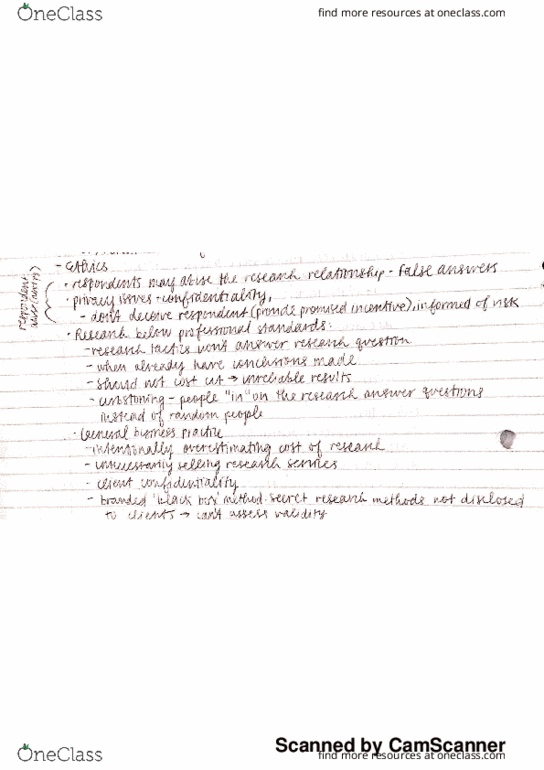 OneClass
find more resources at oneclass.com
- Ethics
· respondents may abuse the research relationship - false answers
· privacy issues - confidentiality,
- don't deceive respondent (provide promised incentive), informed of risk
· Research below professional standards:
- research tactics won't answer research question
- when already have conclusions made
- should not cost cut → unreliable results
- curbstoning - people "in" on the research answer questions
instead of random people
· General business practice
- intentionally overestimating cost of research
- unnecessarily selling research services
- client confidentiality
- branded 'black box' method - secret research methods not disclosed
to clients → can't assess validity
respondent
Scanned by CamScanner
OneClass
find more resources at oneclass.com